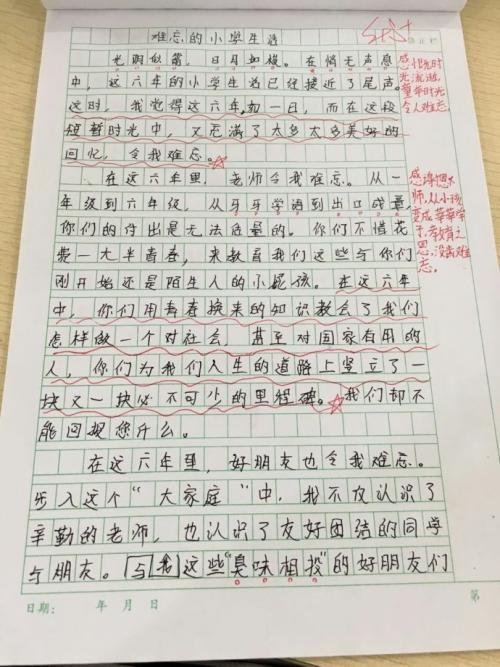 难忘的小学生活
光阴似箭，日月如梭。在悄无声息
中，这六年的小学生活已经接近了尾声。
这时，我觉得这六年如一日，而在这段
短暂时光中，又充满了太多太多美好的
回忆，令我难忘。
在这六年里，老师令我难忘。从一
年级到六年级，从牙牙学语到出口成章，
你们的付出是无法估量的。你们不惜花
费一大半青春，来教育我们这些与你们
刚开始还是陌生人的小屁孩。在这六年
中，你们用青春换来的知识教会了我们
怎样做一个对社会，甚至对国家有用的
人，你们为我们人生的道路上竖立了一
块又一块必不可少的里程碑。我们却不
能回报您什么。
在这六年里，好朋友也令我难忘。
步入这个“大家庭”中，我不仅认识了
辛勤的老师，也认识了友好团结的同学
与朋友。与我这些“臭味相投”的好朋友们
感惜时
光流逝，
童年时光
令人难忘。
感谢恩
师，从小孩
变成莘莘学
子，教育之
恩，没齿难
忘。
日期： 年 月 日
第